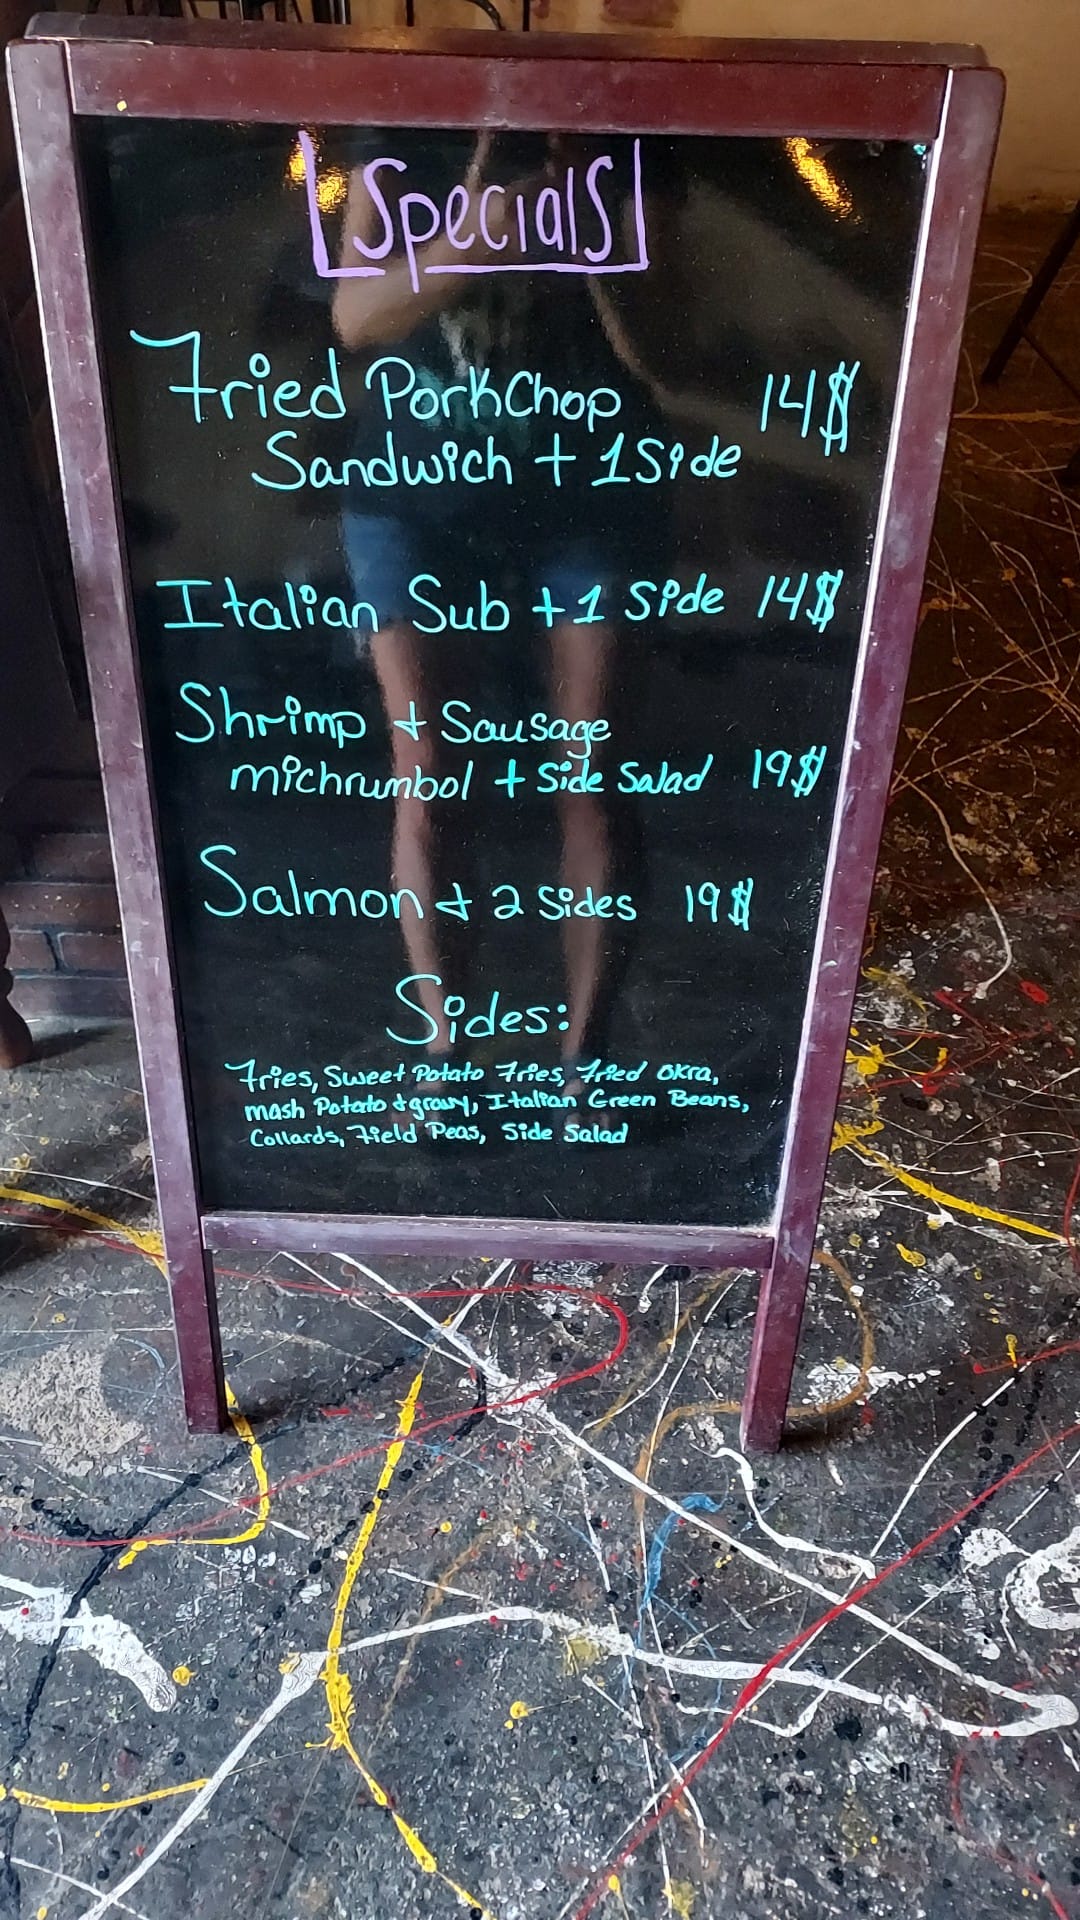 Specials
Fried PorkChop 14$
Sandwich + 1 Side
Italian Sub + 1 Side 14$
Shrimp + Sausage
michrumbol + Side Salad 19$
Salmon + 2 Sides 19$
Sides:
Fries, Sweet Potato Fries, Fried Okra,
mash Potato + gravy, Italian Green Beans,
Collards, Field Peas, Side Salad